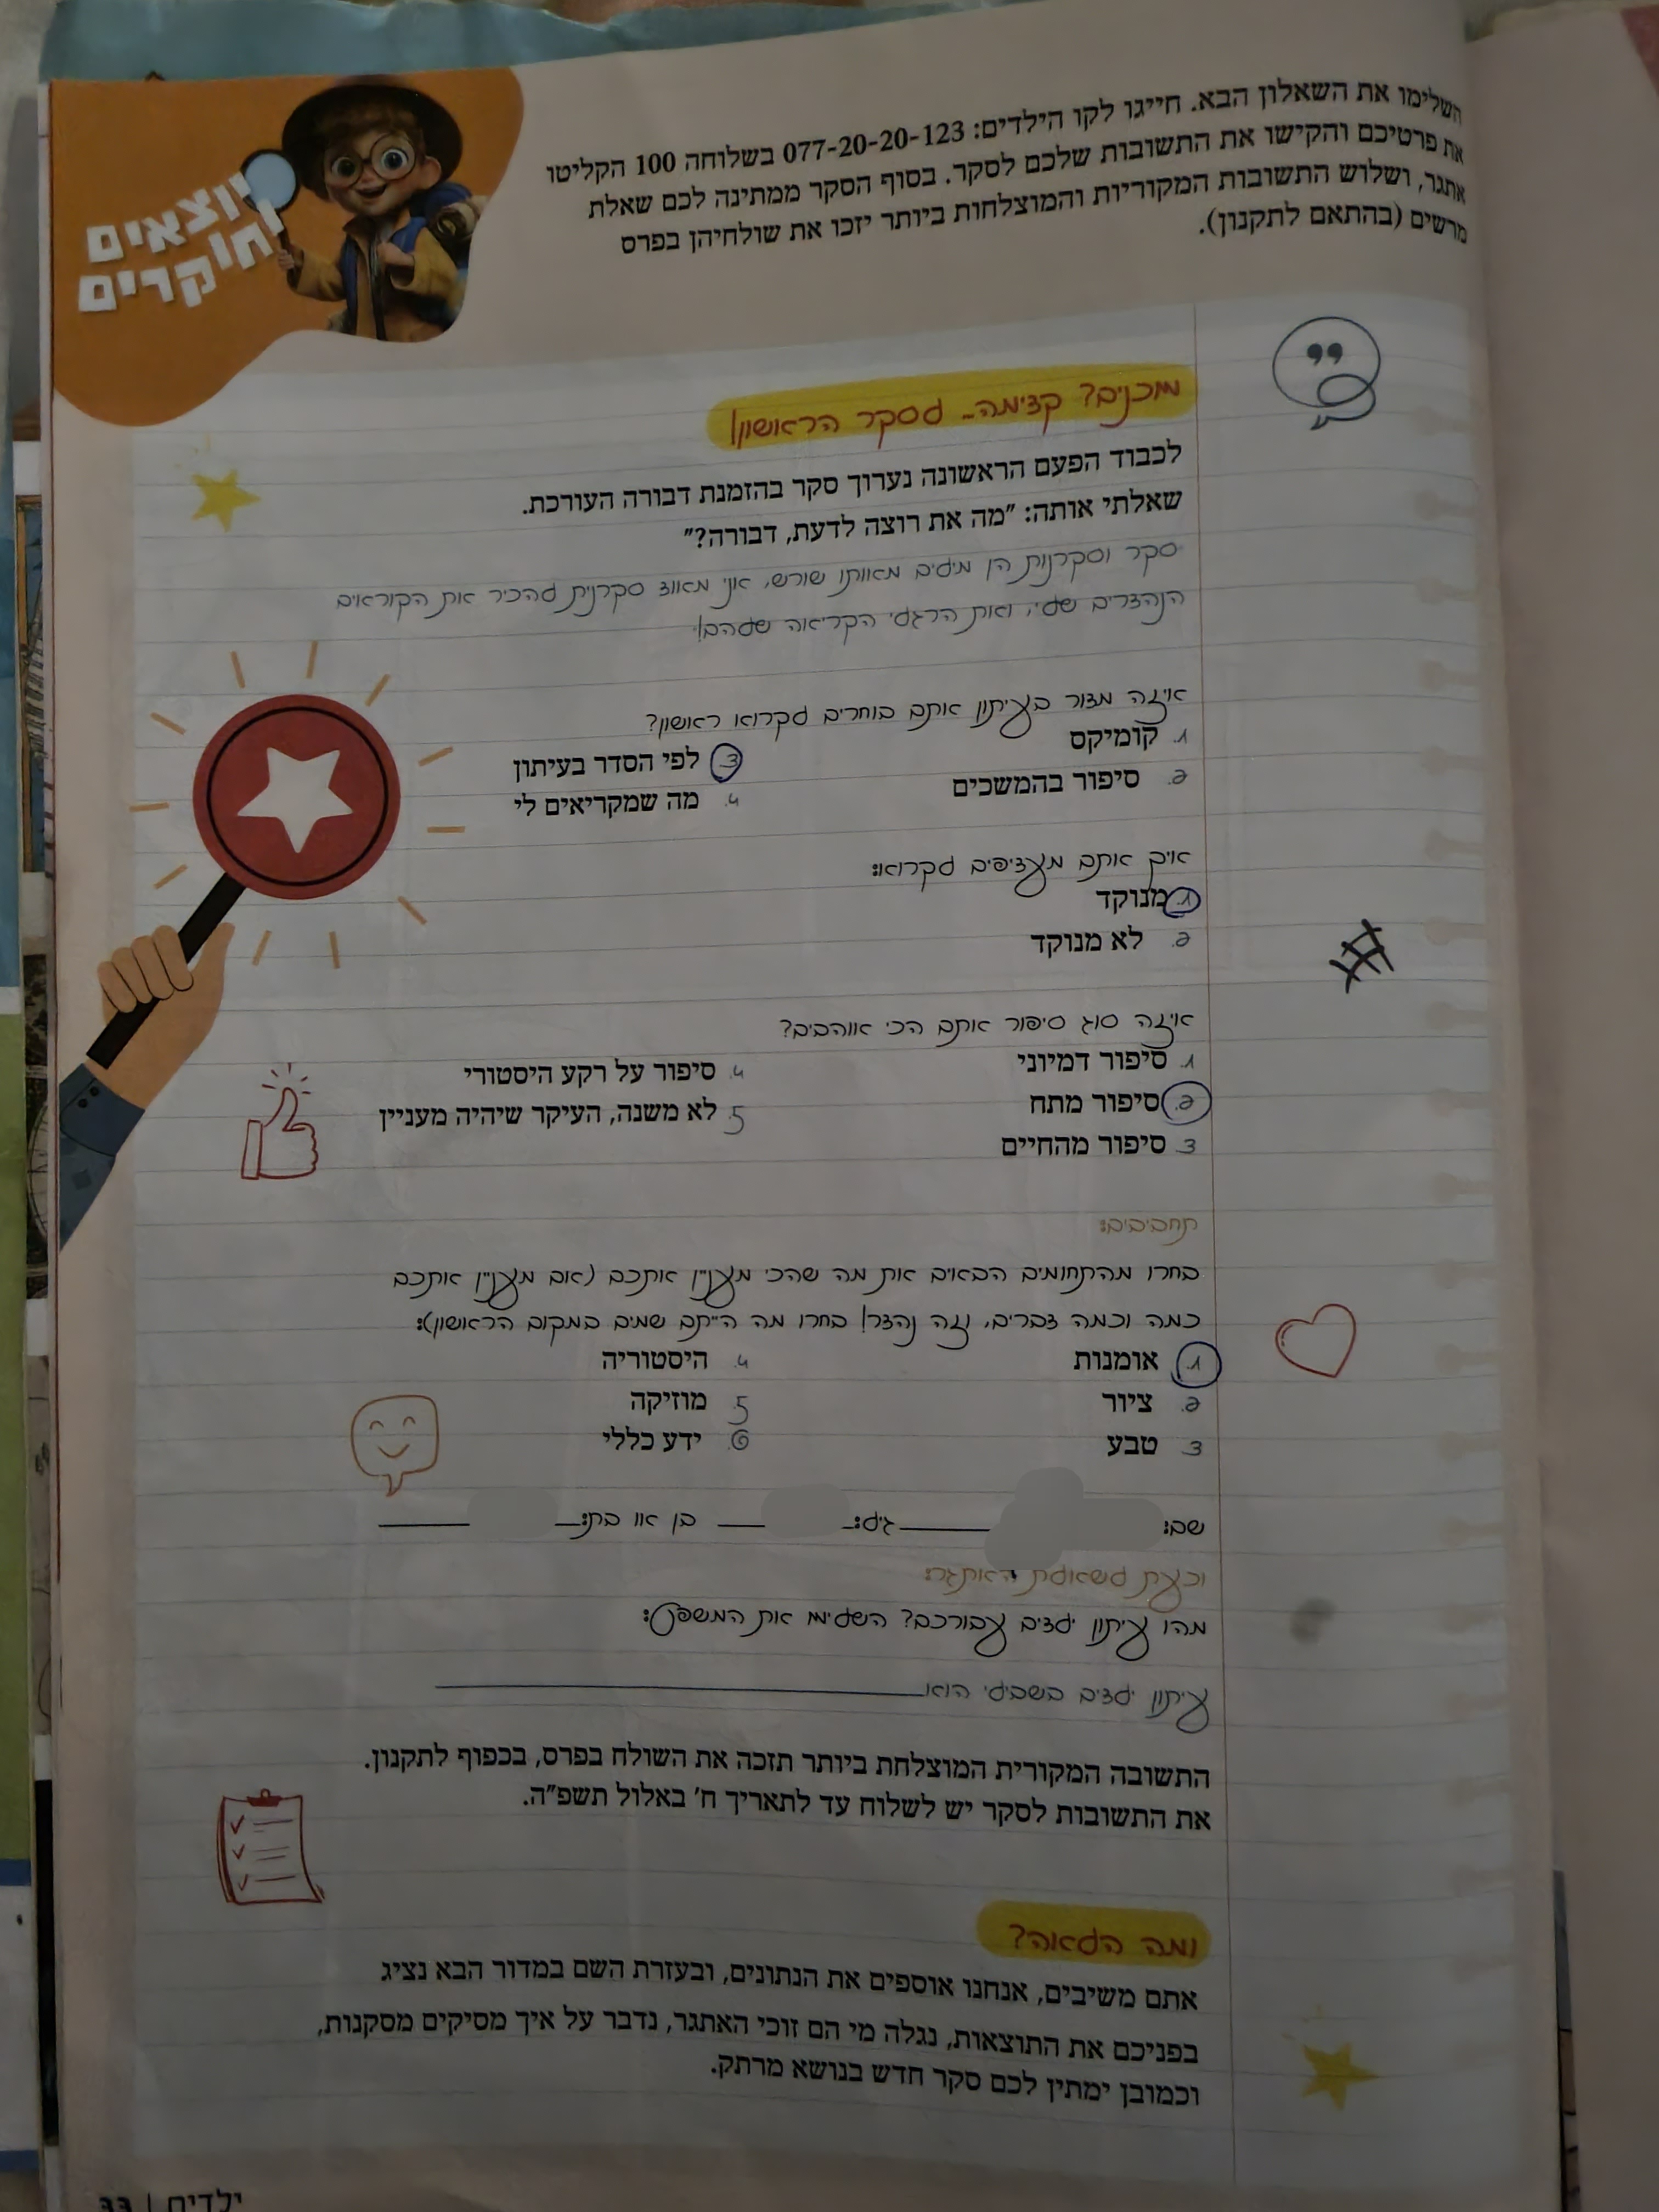 יוצאים
וחוקרים
השלימו את השאלון הבא. חייגו לקו הילדים: 077-20-20-123 בשלוחה 100 הקליטו
את פרטיכם והקישו את התשובות שלכם לסקר. בסוף הסקר ממתינה לכם שאלת
אתגר, ושלוש התשובות המקוריות והמוצלחות ביותר יזכו את שולחיהן בפרס
מרשים (בהתאם לתקנון).
מוכנים? קדימה... לסקר הראשון!
לכבוד הפעם הראשונה נערוך סקר בהזמנת דבורה העורכת.
שאלתי אותה: "מה את רוצה לדעת, דבורה?"
סקר וסקרנות הן מילים מאותו שורש, אני מאוד סקרנית להכיר את הקוראים
הנהדרים שלי, ואת הרגלי הקריאה שלהם!
איזה מדור בעיתון אתם בוחרים לקרוא ראשון?
1. קומיקס
2. סיפור בהמשכים
3. לפי הסדר בעיתון
4. מה שמקריאים לי
איך אתם מעדיפים לקרוא:
1. מנוקד
2. לא מנוקד
איזה סוג סיפור אתם הכי אוהבים?
1. סיפור דמיוני
2. סיפור מתח
3. סיפור מהחיים
4. סיפור על רקע היסטורי
5. לא משנה, העיקר שיהיה מעניין
תחביבים:
בחרו מהתחומים הבאים את מה שהכי מעניין אתכם (אם מעניין אתכם
כמה וכמה דברים, זה נהדר! בחרו מה הייתם שמים במקום הראשון):
1. אומנות
2. ציור
3. טבע
4. היסטוריה
5. מוזיקה
6. ידע כללי
שם: גיל: בן או בת:
וכעת לשאלת האתגר:
מהו עיתון ילדים עבורכם? השלימו את המשפט:
עיתון ילדים בשבילי הוא
התשובה המקורית המוצלחת ביותר תזכה את השולח בפרס, בכפוף לתקנון.
את התשובות לסקר יש לשלוח עד לתאריך ח' באלול תשפ"ה.
ומה הלאה?
אתם משיבים, אנחנו אוספים את הנתונים, ובעזרת השם במדור הבא נציג
בפניכם את התוצאות, נגלה מי הם זוכי האתגר, נדבר על איך מסיקים מסקנות,
וכמובן ימתין לכם סקר חדש בנושא מרתק.
ילדים | 33